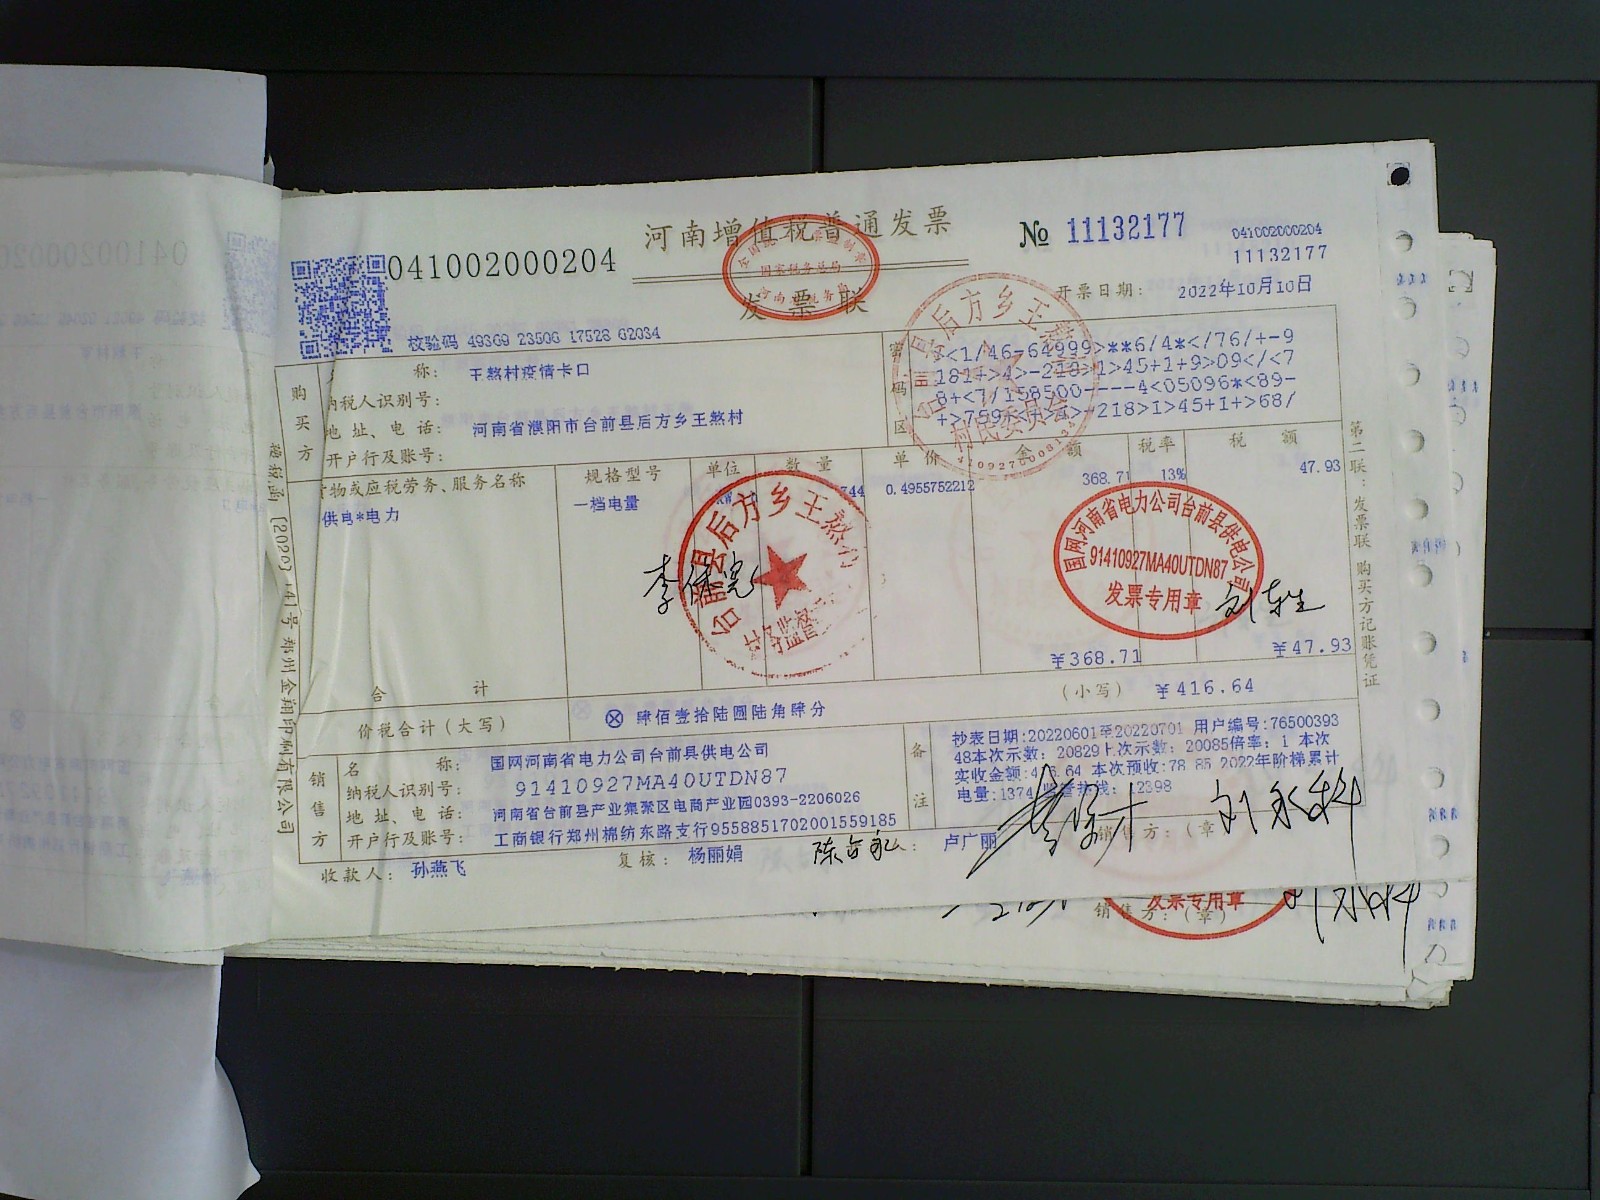 河南增值税普通发票
发票联
041002000204
№ 11132177
041002000204
11132177
开票日期: 2022年10月10日
校验码 49369 23506 17528 62034
购买方
称: 王熬村疫情卡口
纳税人识别号:
地址、电话: 河南省濮阳市台前县后方乡王熬村
开户行及账号:
<1/46-64999>**6/4*</76/+-9
181+>4>-218>1>45+1+9>09</<7
8+<7/158500----4<05096*<89-
218>1>45+1+>68/
货物或应税劳务、服务名称 规格型号 单位 数量 单价 金额 税率 税额
供电*电力 一档电量 744 0.4955752212 368.71 13% 47.93
台前县后方乡王熬村
村民委员会
国网河南省电力公司台前县供电公司
91410927MA40UTDN87
发票专用章
合计 ¥368.71 ¥47.93
价税合计(大写) ⊗ 肆佰壹拾陆圆陆角肆分 (小写) ¥416.64
销售方
名称: 国网河南省电力公司台前县供电公司
纳税人识别号: 91410927MA40UTDN87
地址、电话: 河南省台前县产业集聚区电商产业园0393-2206026
开户行及账号: 工商银行郑州棉纺东路支行9558851702001559185
备注
抄表日期:20220601至20220701 用户编号:76500393
48本次示数: 20829上次示数: 20085倍率: 1 本次
实收金额:416.64 本次预收:78.85 2022年阶梯累计
电量:1374 监督热线: 12398
收款人: 孙燕飞 复核: 杨丽娟 卢广丽 销售方: (章)
第二联: 发票联 购买方记账凭证
税总函 [2020] 141号 郑州金翔印刷有限公司
发票专用章
销售方: (章)